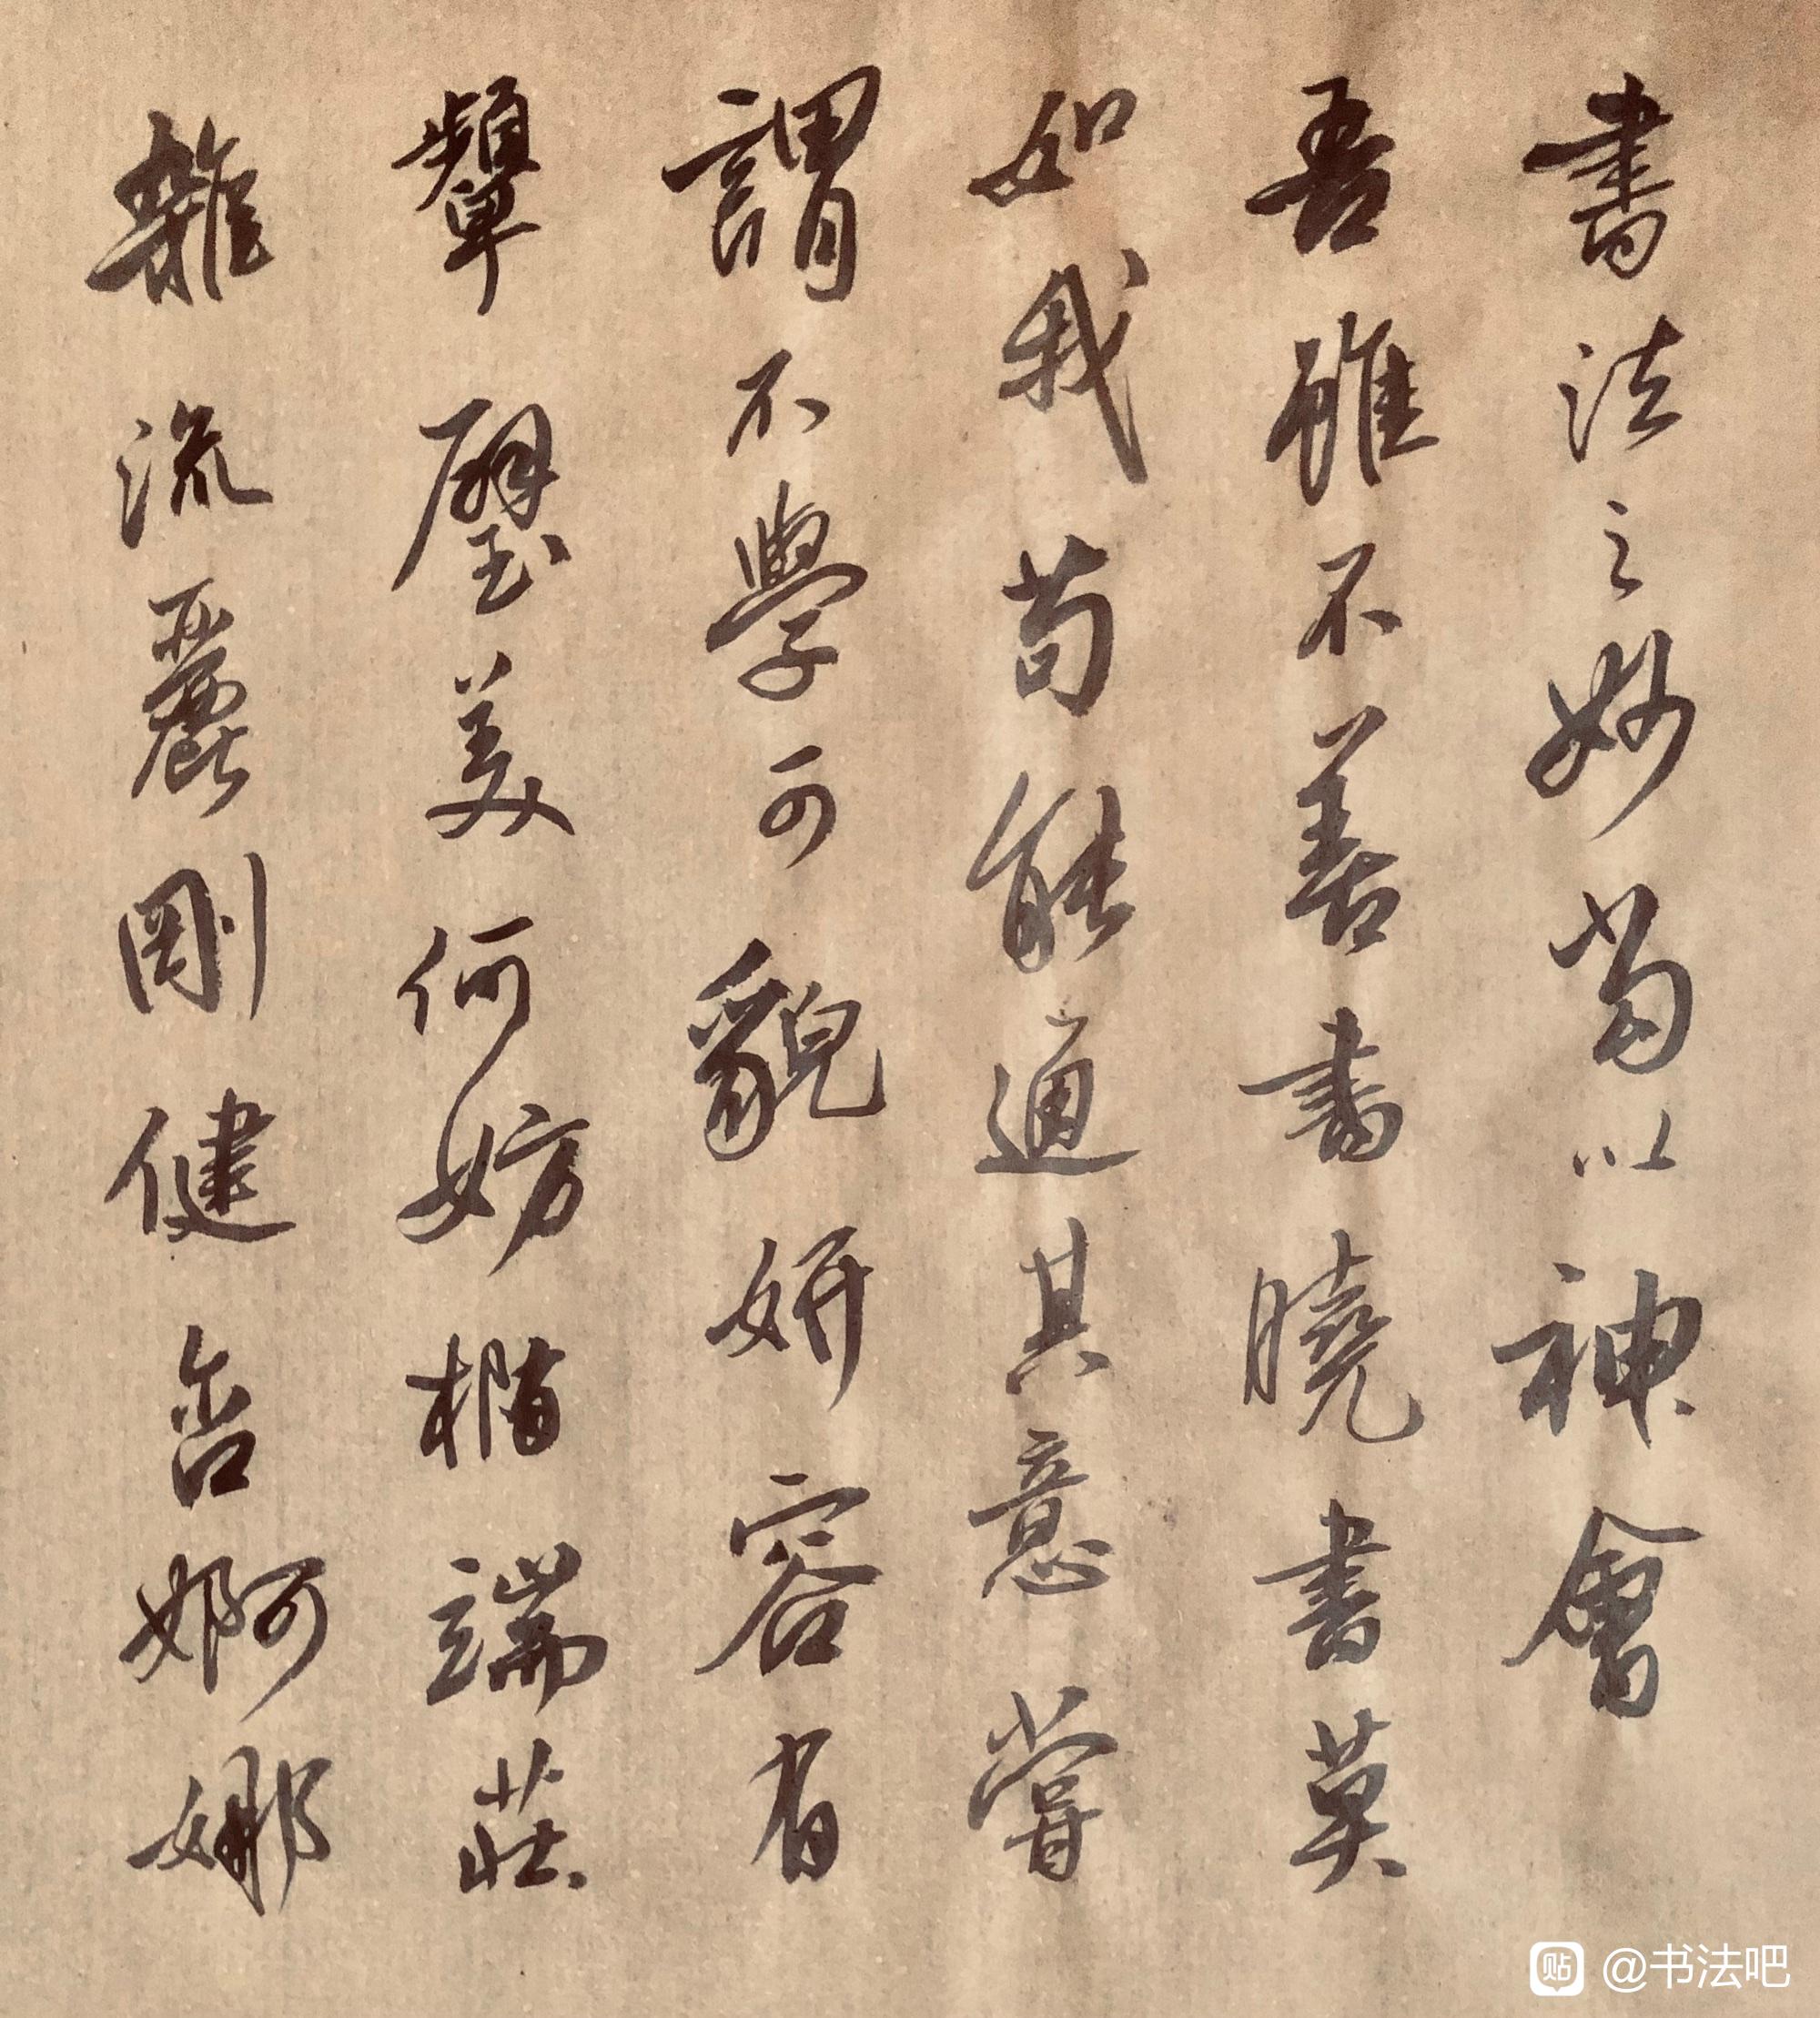 書法之妙當以神會
吾雖不善書曉書莫
如我苟能通其意嘗
謂不學可貌妍容有
顰璧美何妨橢端莊
雜流麗剛健含婀娜
貼 @书法吧